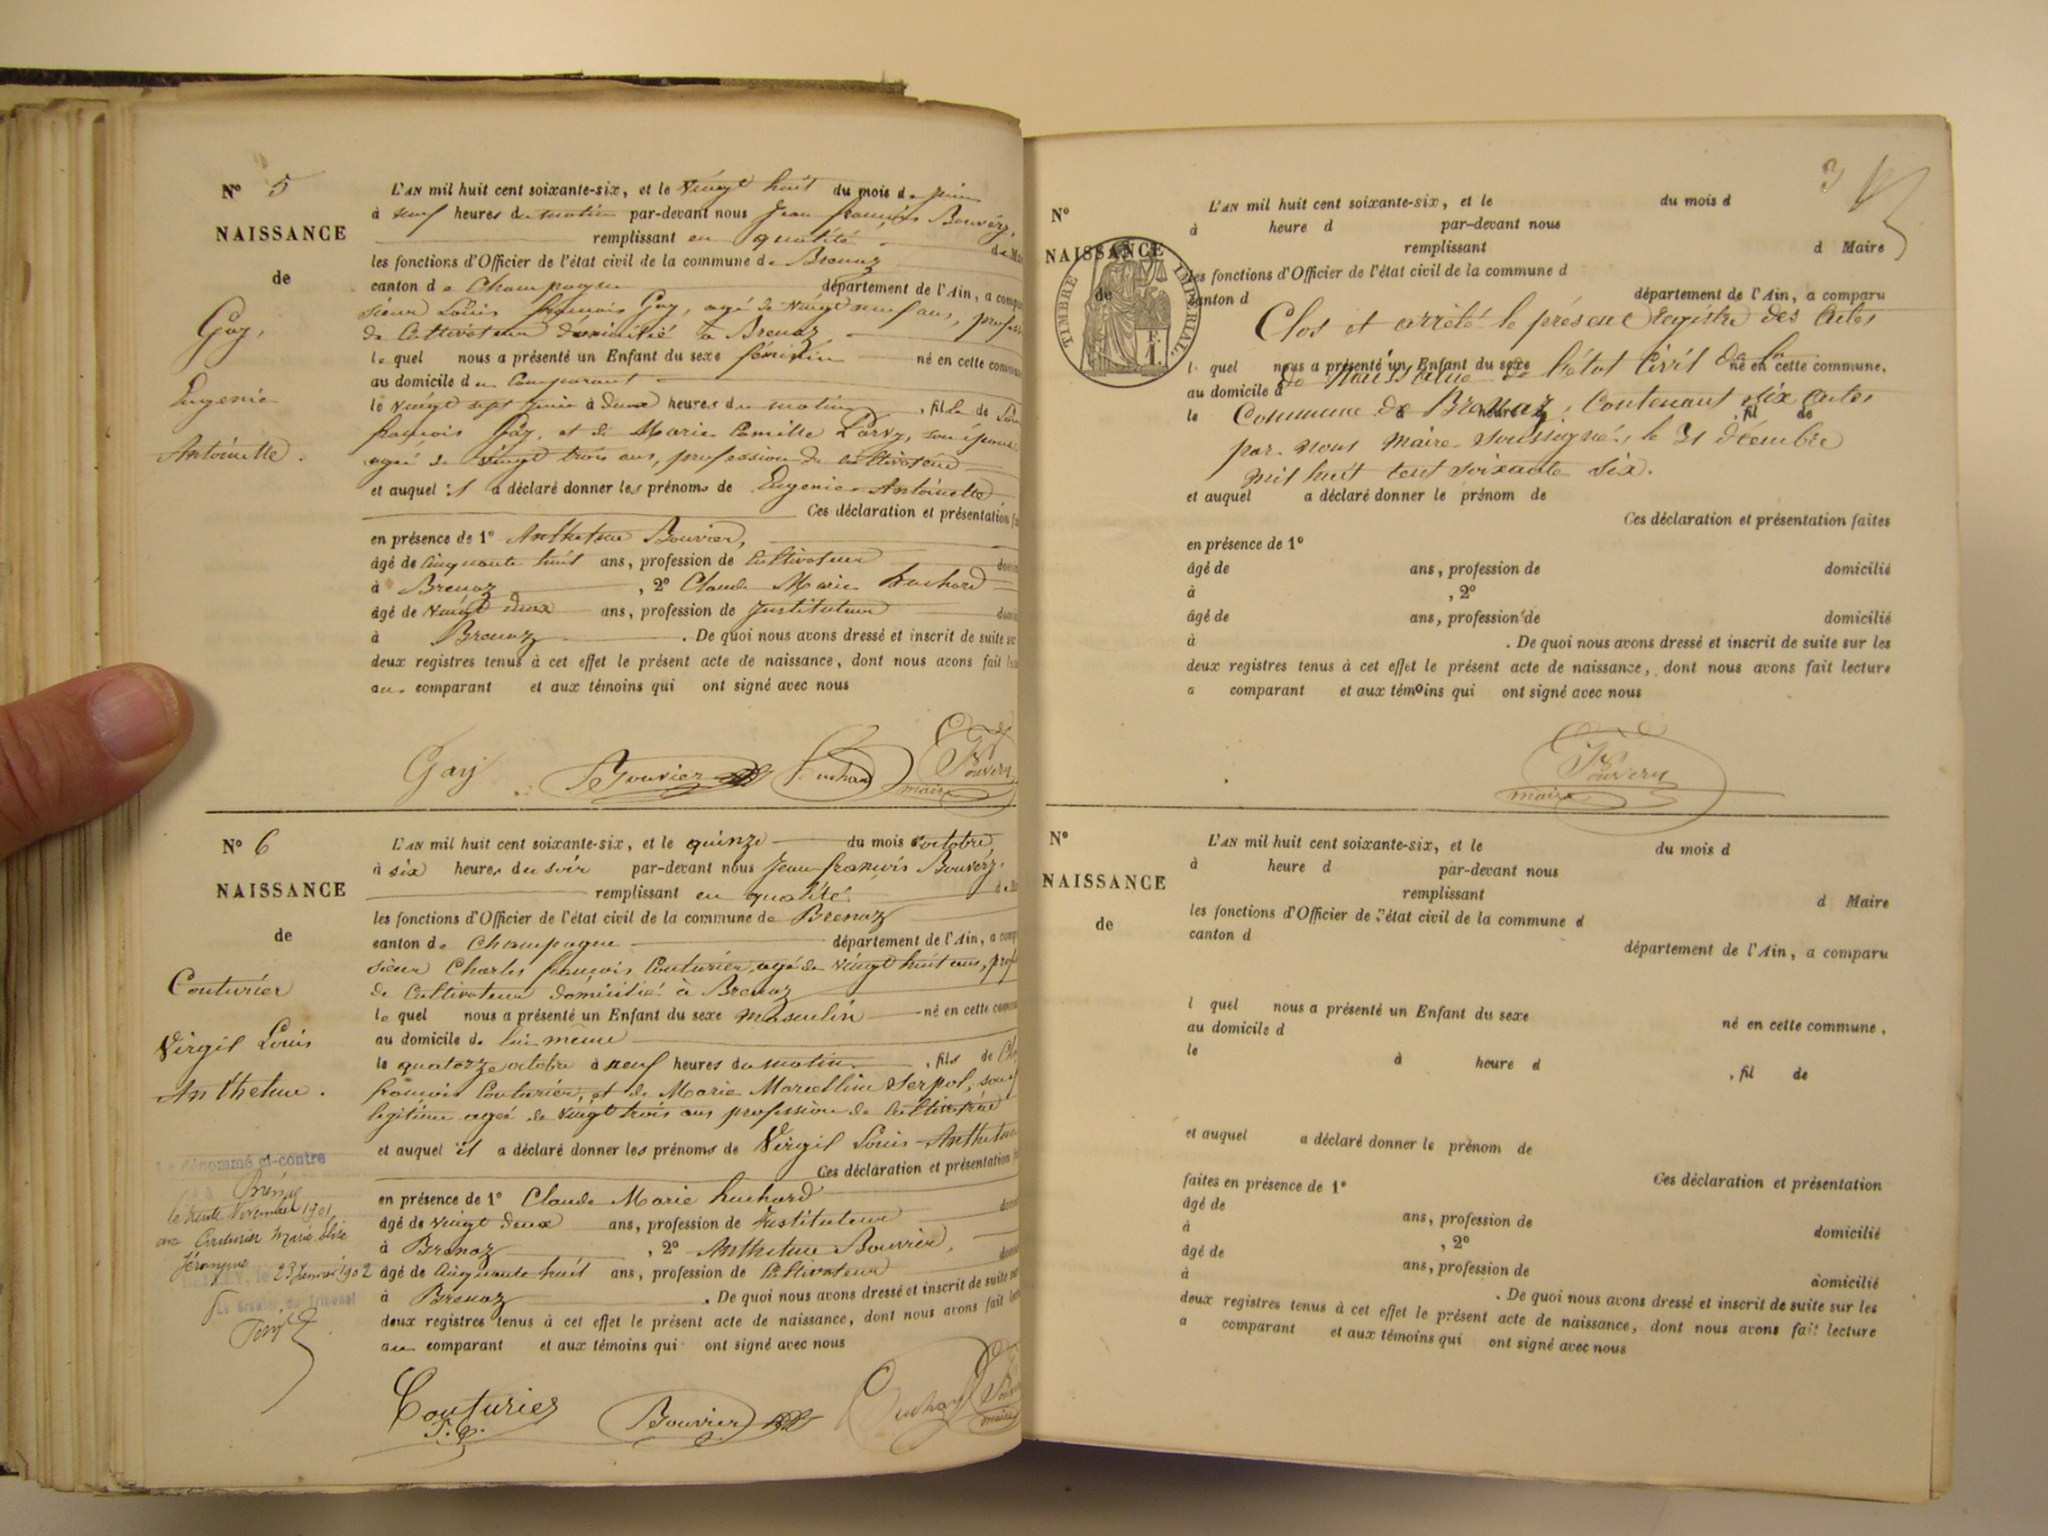 N° 5
NAISSANCE
de
Gay,
Eugenie
Antoinette.
L'AN mil huit cent soixante-six, et le vingt huit du mois de juin
à neuf heures du matin par-devant nous Jean françois Bouvery,
remplissant en qualité de Mai
les fonctions d'Officier de l'état civil de la commune de Brenaz
canton de Champagne département de l'Ain, a compa
sieur Louis françois Gay, agé de vingt neuf ans, profess
de Cultivateur domicilié à Brenaz
lequel nous a présenté un Enfant du sexe féminin né en cette commun
au domicile du Comparant
le vingt sept juin à deux heures du matin, fille de
françois Gay, et de Marie Camille son épouse
agée de vingt trois ans, profession de cultivateur
et auquel il a déclaré donner les prénoms de Eugenie Antoinette
Ces déclaration et présentation fa
en présence de 1° Anthelme Bouvier,
âgé de cinquante huit ans, profession de Cultivateur domi
à Brenaz, 2° Claude Marie Luchard
âgé de vingt deux ans, profession de Instituteur domi
à Brenaz. De quoi nous avons dressé et inscrit de suite su
deux registres tenus à cet effet le présent acte de naissance, dont nous avons fait lec
au comparant et aux témoins qui ont signé avec nous
Gay Bouvier Luchard Bouvery
maire
N° 6
NAISSANCE
de
Couturier
Virgil Louis
Anthelme.
L'AN mil huit cent soixante-six, et le quinze du mois d'octobre
à six heures du soir par-devant nous Jean françois Bouvery.
remplissant en qualité de Ma
les fonctions d'Officier de l'état civil de la commune de Brenaz
canton de Champagne département de l'Ain, a comp
sieur Charles françois Couturier, agé de vingt huit ans, prof
de Cultivateur domicilié à Brenaz
lequel nous a présenté un Enfant du sexe masculin né en cette commu
au domicile de lui même
le quatorze octobre à neuf heures du matin, fils de Ch
françois Couturier, et de Marie Marcelline Serpol, son
legitime agée de vingt trois ans profession de cultivateur
et auquel il a déclaré donner les prénoms de Virgil Louis Anthelme
Ces déclaration et présentation
en présence de 1° Claude Marie Luchard
âgé de vingt deux ans, profession de Instituteur domi
à Brenaz, 2° Anthelme Bouvier,
âgé de cinquante huit ans, profession de Cultivateur domi
à Brenaz. De quoi nous avons dressé et inscrit de suite sur
deux registres tenus à cet effet le présent acte de naissance, dont nous avons fait lec
au comparant et aux témoins qui ont signé avec nous
Le dénommé ci-contre
le trente Novembre 1901
avec Couturier Marie Elise
23 Janvier 1902
Le Greffier du Tribunal
Couturier
Bouvier Luchard
maire
3
N°
NAISSANCE
de
TIMBRE IMPERIAL
L'AN mil huit cent soixante-six, et le du mois d
à heure d par-devant nous
remplissant d Maire
les fonctions d'Officier de l'état civil de la commune d
canton d département de l'Ain, a comparu
Clos et arrêté le présent registre des Actes
l quel nous a présenté un Enfant du sexe né en cette commune,
de Naissance de l'état Civil de la
au domicile d
le à heure d, fil de
Commune de Brenaz, Contenant six Actes
par nous Maire soussigné, le 31 décembre
mil huit cent soixante six.
et auquel a déclaré donner le prénom de
Ces déclaration et présentation faites
en présence de 1°
âgé de ans, profession de domicilié
à , 2°
âgé de ans, profession de domicilié
à . De quoi nous avons dressé et inscrit de suite sur les
deux registres tenus à cet effet le présent acte de naissance, dont nous avons fait lecture
a comparant et aux témoins qui ont signé avec nous
Bouvery
maire
N°
NAISSANCE
de
L'AN mil huit cent soixante-six, et le du mois d
à heure d par-devant nous
remplissant d Maire
les fonctions d'Officier de l'état civil de la commune d
canton d département de l'Ain, a comparu
l quel nous a présenté un Enfant du sexe né en cette commune,
au domicile d
le à heure d, fil de
et auquel a déclaré donner le prénom de
Ces déclaration et présentation
faites en présence de 1°
âgé de ans, profession de domicilié
à , 2°
âgé de ans, profession de domicilié
à . De quoi nous avons dressé et inscrit de suite sur les
deux registres tenus à cet effet le présent acte de naissance, dont nous avons fait lecture
a comparant et aux témoins qui ont signé avec nous